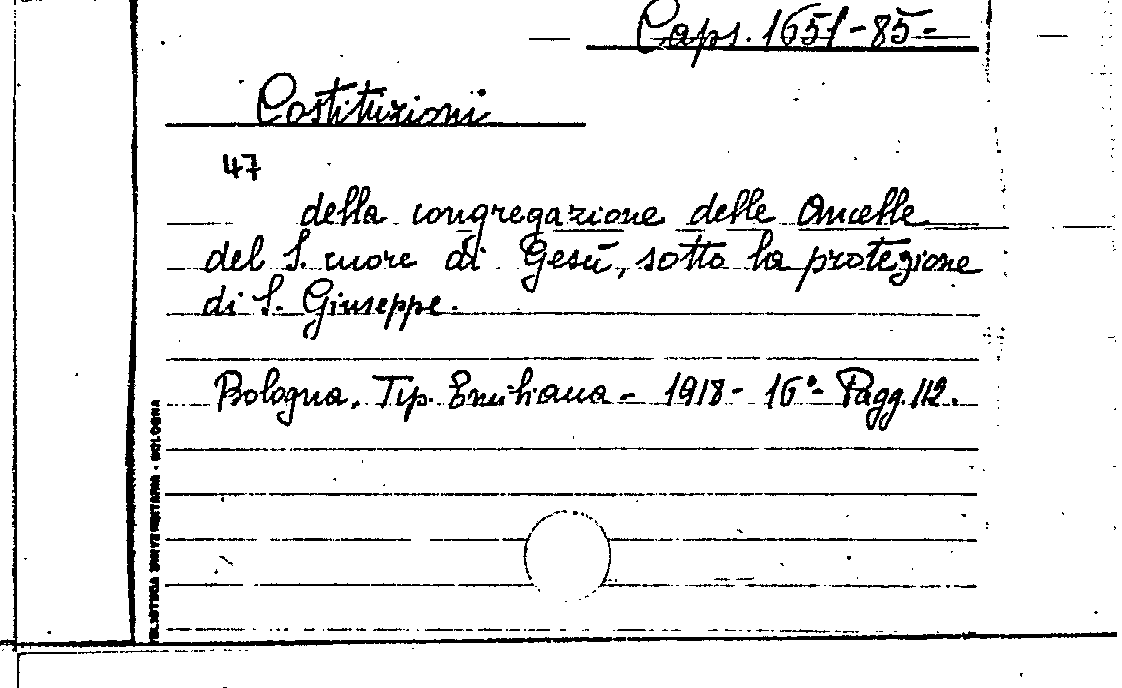 Caps. 1651-85-
Costituzioni
47
della congregazione delle Ancelle
del S. cuore di Gesù, sotto la protezione
di S. Giuseppe.
Bologna, Tip. Emiliana - 1918 - 16°- Pagg. 112.
BIBLIOTECA UNIVERSITARIA - BOLOGNA